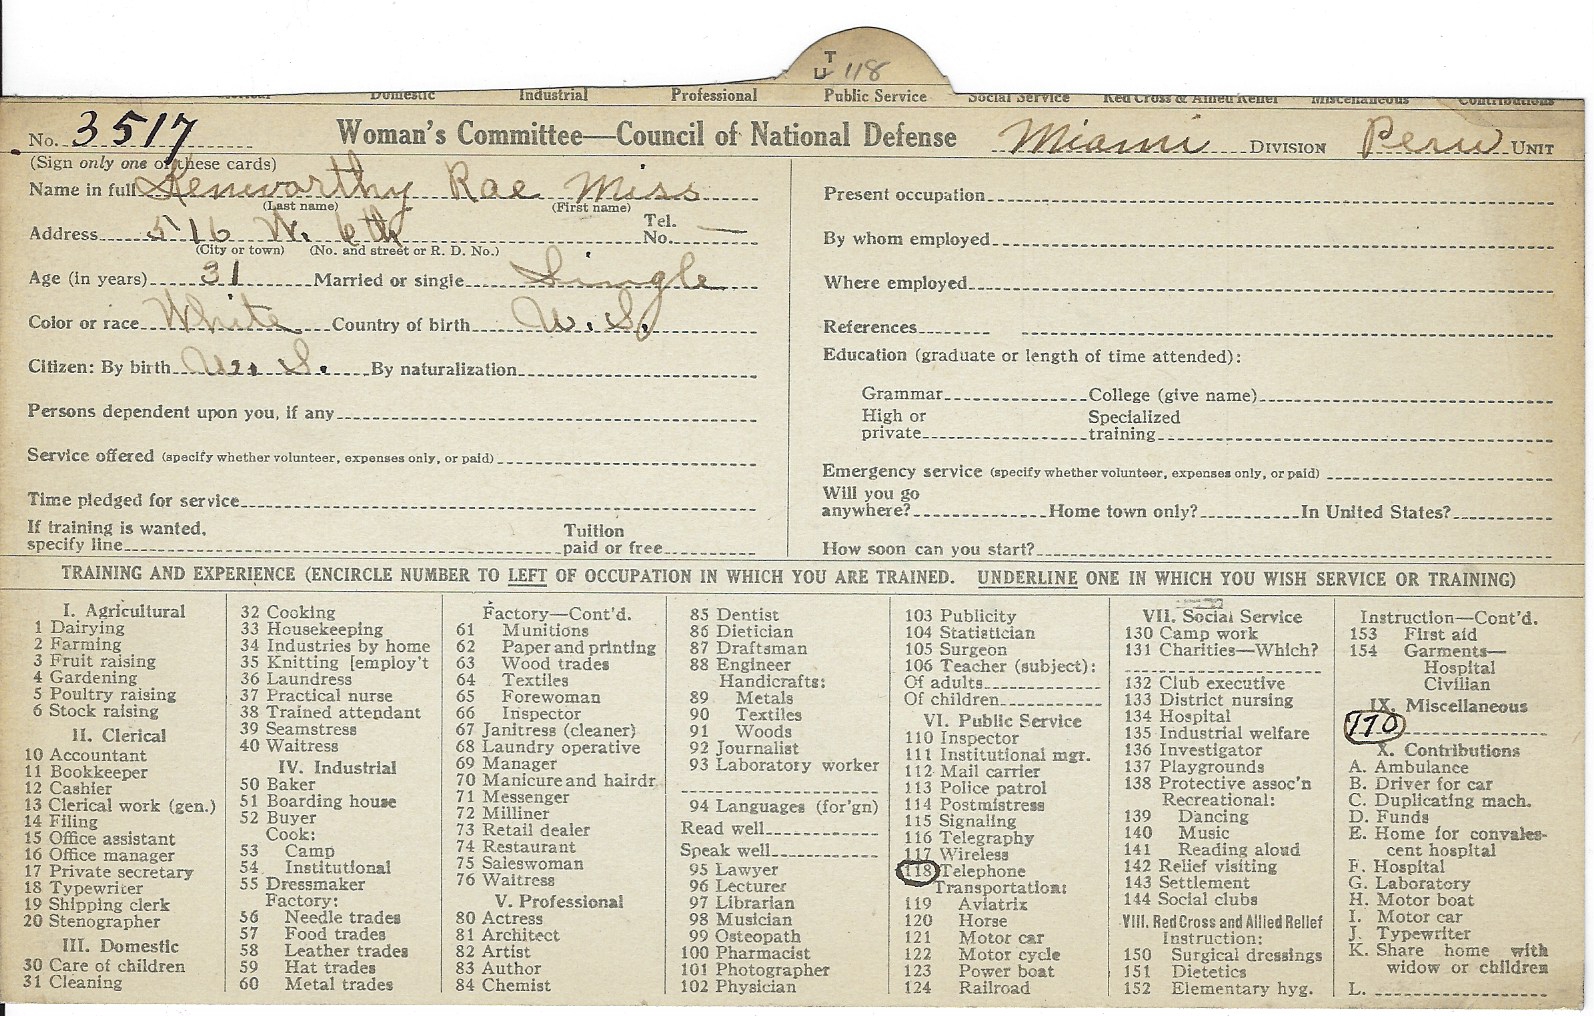 T
U 118
Domestic Industrial Professional Public Service Social Service Red Cross & Allied Relief Miscellaneous Contributions
No. 3517 Woman's Committee—Council of National Defense Miami DIVISION Peru UNIT
(Sign only one of these cards)
Name in full Kenworthy Rae Miss
(Last name) (First name)
Address 516 W. 6th Tel. No. —
(City or town) (No. and street or R. D. No.)
Age (in years) 31 Married or single Single
Color or race White Country of birth U. S.
Citizen: By birth U. S. By naturalization
Persons dependent upon you, if any
Service offered (specify whether volunteer, expenses only, or paid)
Time pledged for service
If training is wanted, specify line Tuition paid or free
Present occupation
By whom employed
Where employed
References
Education (graduate or length of time attended):
Grammar College (give name)
High or private Specialized training
Emergency service (specify whether volunteer, expenses only, or paid)
Will you go anywhere? Home town only? In United States?
How soon can you start?
TRAINING AND EXPERIENCE (ENCIRCLE NUMBER TO LEFT OF OCCUPATION IN WHICH YOU ARE TRAINED. UNDERLINE ONE IN WHICH YOU WISH SERVICE OR TRAINING)
I. Agricultural
1 Dairying
2 Farming
3 Fruit raising
4 Gardening
5 Poultry raising
6 Stock raising
II. Clerical
10 Accountant
11 Bookkeeper
12 Cashier
13 Clerical work (gen.)
14 Filing
15 Office assistant
16 Office manager
17 Private secretary
18 Typewriter
19 Shipping clerk
20 Stenographer
III. Domestic
30 Care of children
31 Cleaning
32 Cooking
33 Housekeeping
34 Industries by home
35 Knitting [employ't
36 Laundress
37 Practical nurse
38 Trained attendant
39 Seamstress
40 Waitress
IV. Industrial
50 Baker
51 Boarding house
52 Buyer
Cook:
53 Camp
54 Institutional
55 Dressmaker
Factory:
56 Needle trades
57 Food trades
58 Leather trades
59 Hat trades
60 Metal trades
Factory—Cont'd.
61 Munitions
62 Paper and printing
63 Wood trades
64 Textiles
65 Forewoman
66 Inspector
67 Janitress (cleaner)
68 Laundry operative
69 Manager
70 Manicure and hairdr.
71 Messenger
72 Milliner
73 Retail dealer
74 Restaurant
75 Saleswoman
76 Waitress
V. Professional
80 Actress
81 Architect
82 Artist
83 Author
84 Chemist
85 Dentist
86 Dietician
87 Draftsman
88 Engineer
Handicrafts:
89 Metals
90 Textiles
91 Woods
92 Journalist
93 Laboratory worker
94 Languages (for'gn)
Read well
Speak well
95 Lawyer
96 Lecturer
97 Librarian
98 Musician
99 Osteopath
100 Pharmacist
101 Photographer
102 Physician
103 Publicity
104 Statistician
105 Surgeon
106 Teacher (subject):
Of adults
Of children
VI. Public Service
110 Inspector
111 Institutional mgr.
112 Mail carrier
113 Police patrol
114 Postmistress
115 Signaling
116 Telegraphy
117 Wireless
118 Telephone
Transportation:
119 Aviatrix
120 Horse
121 Motor car
122 Motor cycle
123 Power boat
124 Railroad
VII. Social Service
130 Camp work
131 Charities—Which?
132 Club executive
133 District nursing
134 Hospital
135 Industrial welfare
136 Investigator
137 Playgrounds
138 Protective assoc'n
Recreational:
139 Dancing
140 Music
141 Reading aloud
142 Relief visiting
143 Settlement
144 Social clubs
VIII. Red Cross and Allied Relief
Instruction:
150 Surgical dressings
151 Dietetics
152 Elementary hyg.
Instruction—Cont'd.
153 First aid
154 Garments—
Hospital
Civilian
IX. Miscellaneous
170
X. Contributions
A. Ambulance
B. Driver for car
C. Duplicating mach.
D. Funds
E. Home for convales-
cent hospital
F. Hospital
G. Laboratory
H. Motor boat
I. Motor car
J. Typewriter
K. Share home with
widow or children
L.